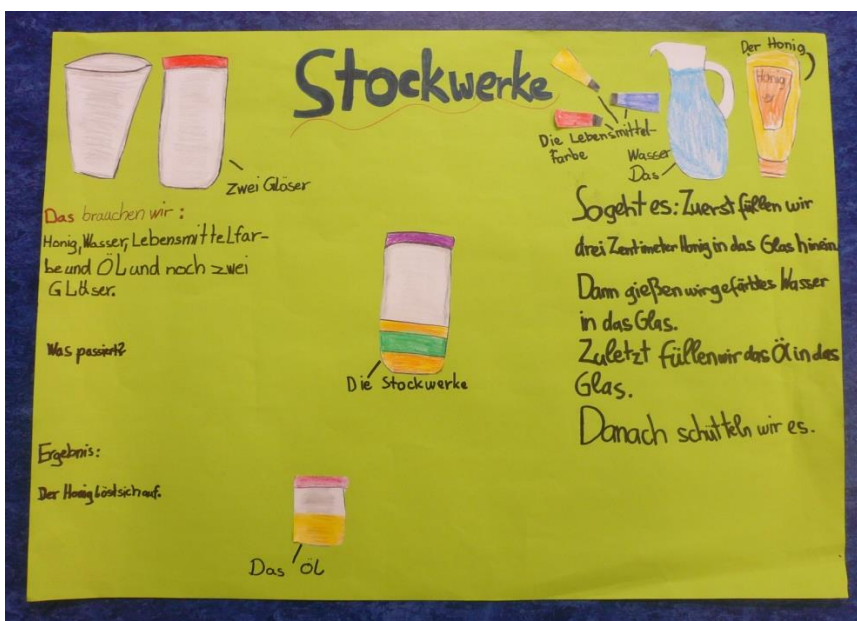 Stockwerke
Der Honig
Honig
Die Lebensmittel-
farbe
Wasser
Das
Zwei Gläser
Das brauchen wir:
Honig, Wasser, Lebensmittelfar-
be und Öl und noch zwei
Gläser.
Was passiert?
Ergebnis:
Der Honig löst sich auf.
Die Stockwerke
Das Öl
So geht es: Zuerst füllen wir
drei Zentimeter Honig in das Glas hinein.
Dann gießen wir gefärbtes Wasser
in das Glas.
Zuletzt füllen wir das Öl in das
Glas.
Danach schütteln wir es.